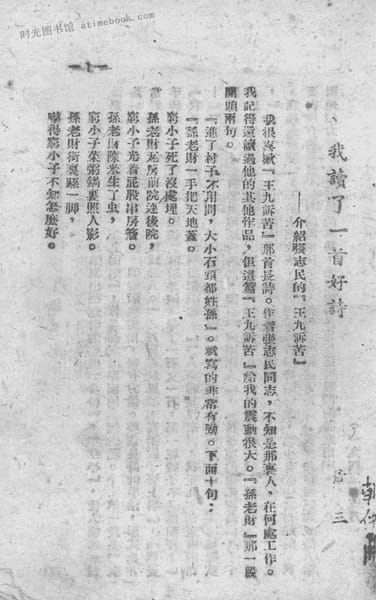 时光图书馆 atimebook.com
一1一
我讀了一首好詩
——介紹張志民的『王九訴苦』
三
我很喜歡『王九訴苦』那首長詩。作者張志民同志，不知是那裏人，在何處工作。
我記得還讀過他的其他作品，但這篇『王九訴苦』給我的震動很大。『孫老財』那一段
開頭兩句。
『進了村子不用問，大小石頭都姓孫』。就寫的非常有勁。下面十句：
『孫老財一手把天地蓋。
窮小子死了沒處埋。
孫老財瓦房前院連後院，
窮小子光着屁股串房簷。
孫老財陳米生了虫，
窮小子菜粥鍋裏照人影。
孫老財街裏跺一脚，
嚇得窮小子不知怎麼好。